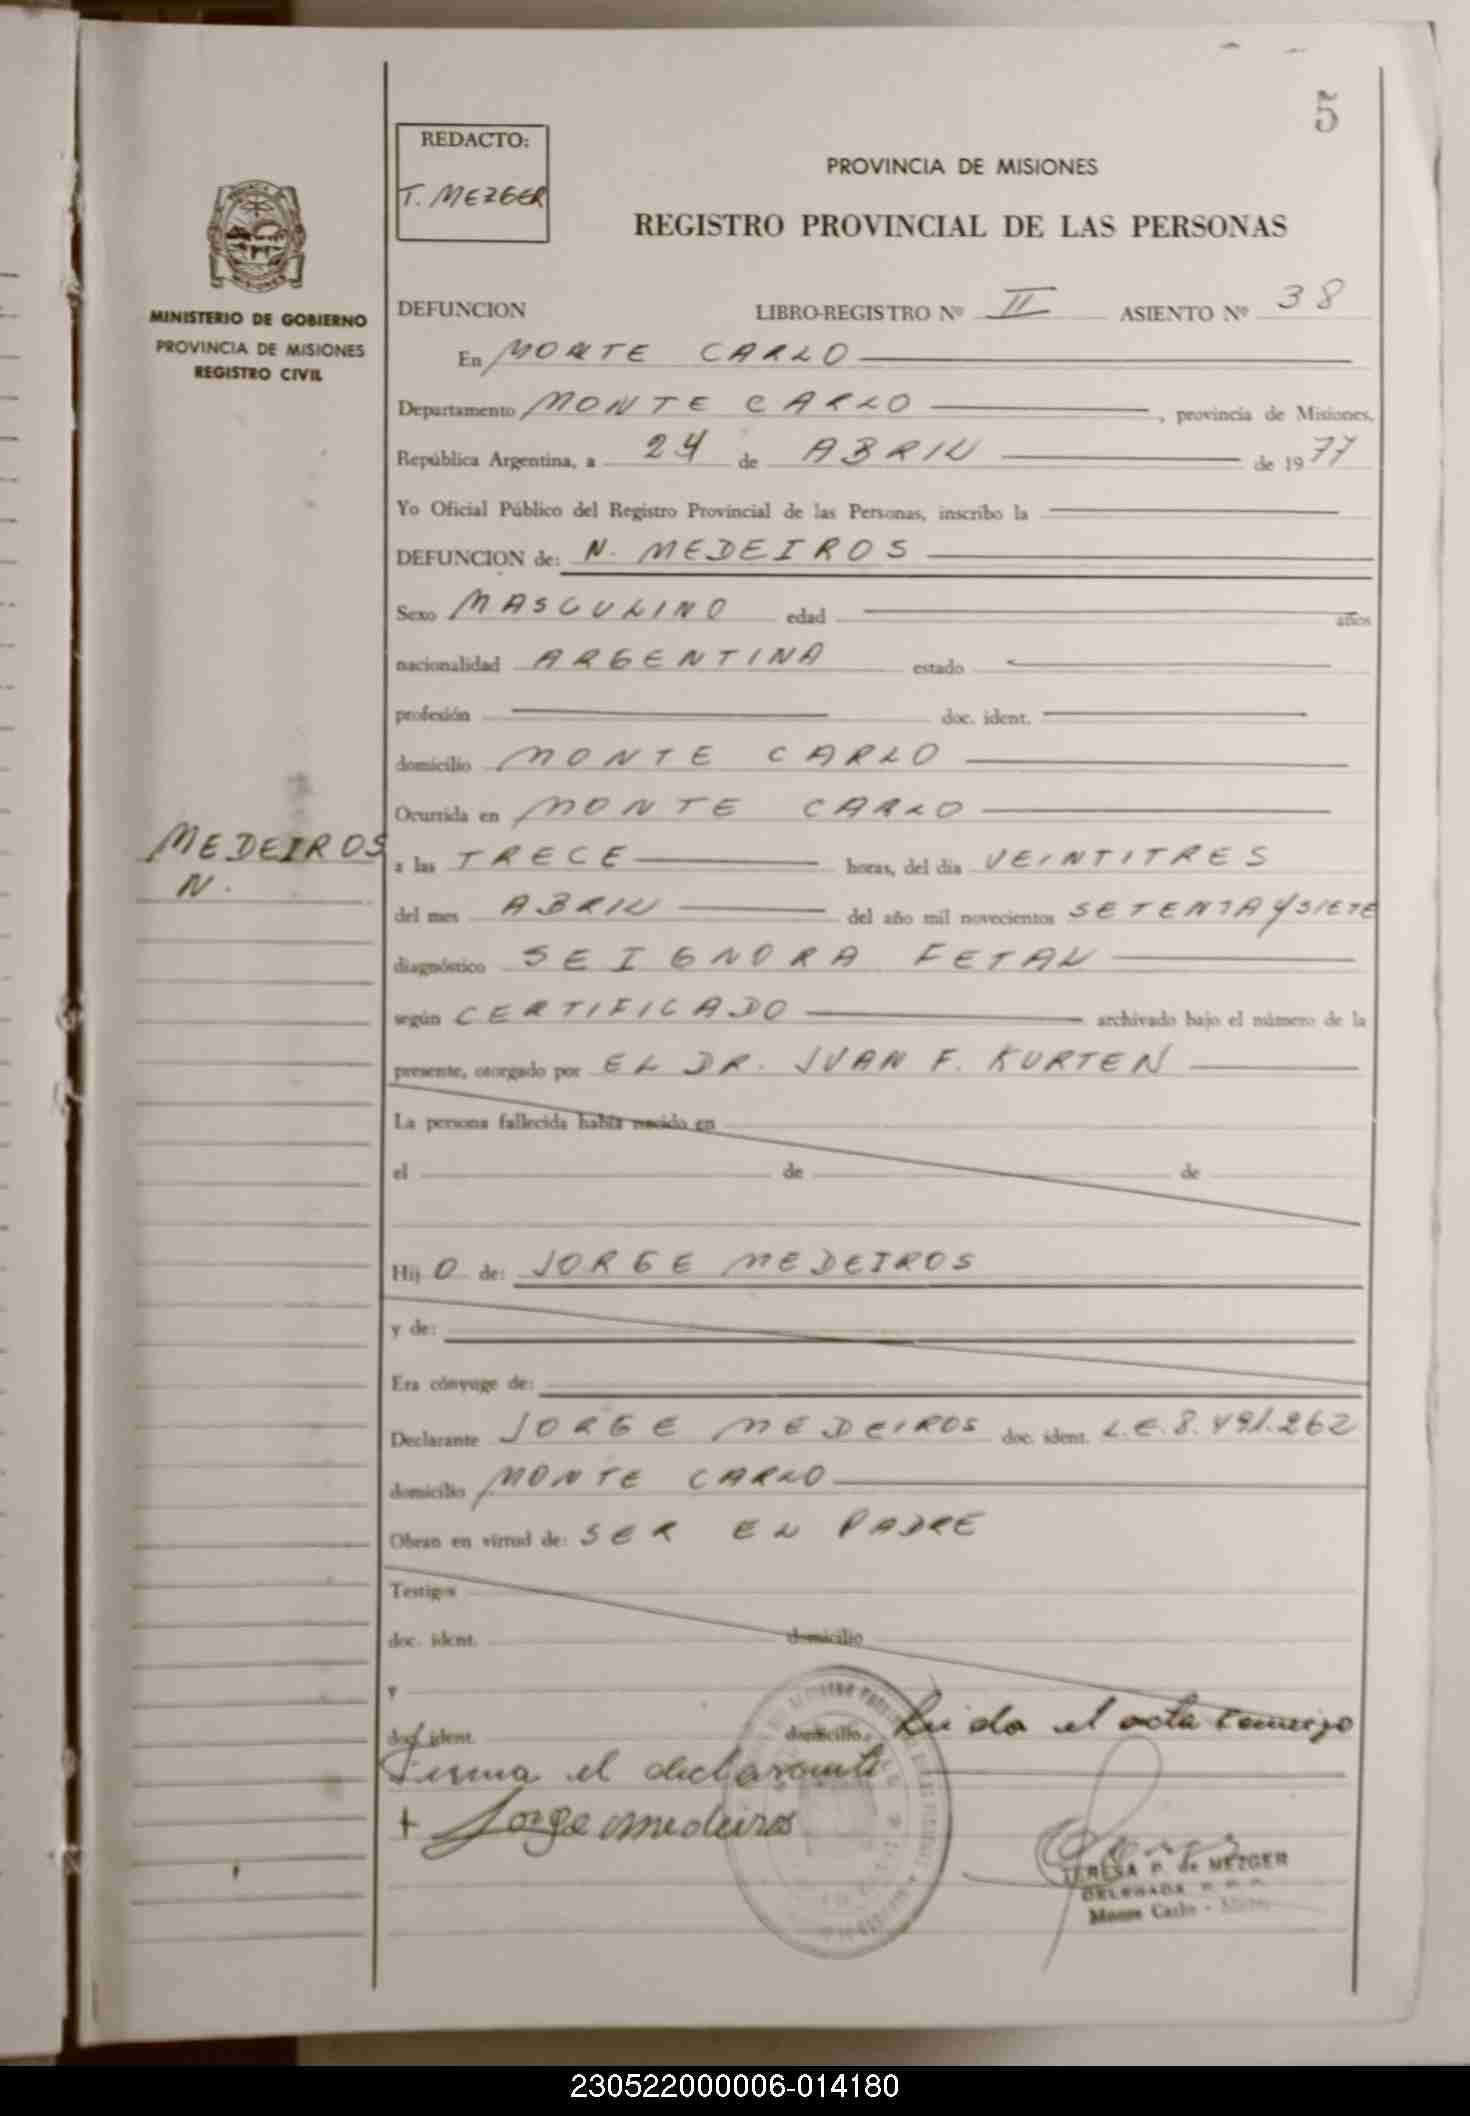 5
REDACTO:
T. MEZGER
PROVINCIA DE MISIONES
REGISTRO PROVINCIAL DE LAS PERSONAS
MINISTERIO DE GOBIERNO
PROVINCIA DE MISIONES
REGISTRO CIVIL
DEFUNCION LIBRO-REGISTRO Nº II ASIENTO Nº 38
En MONTE CARLO
Departamento MONTE CARLO, provincia de Misiones,
República Argentina, a 24 de ABRIL de 1977
Yo Oficial Público del Registro Provincial de las Personas, inscribo la
DEFUNCION de: N. MEDEIROS
Sexo MASCULINO edad años
nacionalidad ARGENTINA estado
profesión doc. ident.
domicilio MONTE CARLO
Ocurrida en MONTE CARLO
MEDEIROS
N.
a las TRECE horas, del día VEINTITRES
del mes ABRIL del año mil novecientos SETENTA Y SIETE
diagnóstico SE IGNORA FETAL
según CERTIFICADO archivado bajo el número de la
presente, otorgado por EL DR. JUAN F. KURTEN
La persona fallecida había nacido en
el de de
Hij O de: JORGE MEDEIROS
y de:
Era cónyuge de:
Declarante JORGE MEDEIROS doc. ident. L.E. 8.491.262
domicilio MONTE CARLO
Obran en virtud de: SER EL PADRE
Testigos
doc. ident. domicilio
y
doc. ident. domicilio Leida el acta conmigo
Firma el declarante
+ Jorge medeiros
TERESA P. de MEZGER
DELEGADA
Monte Carlo - Mnes.
230522000006-014180